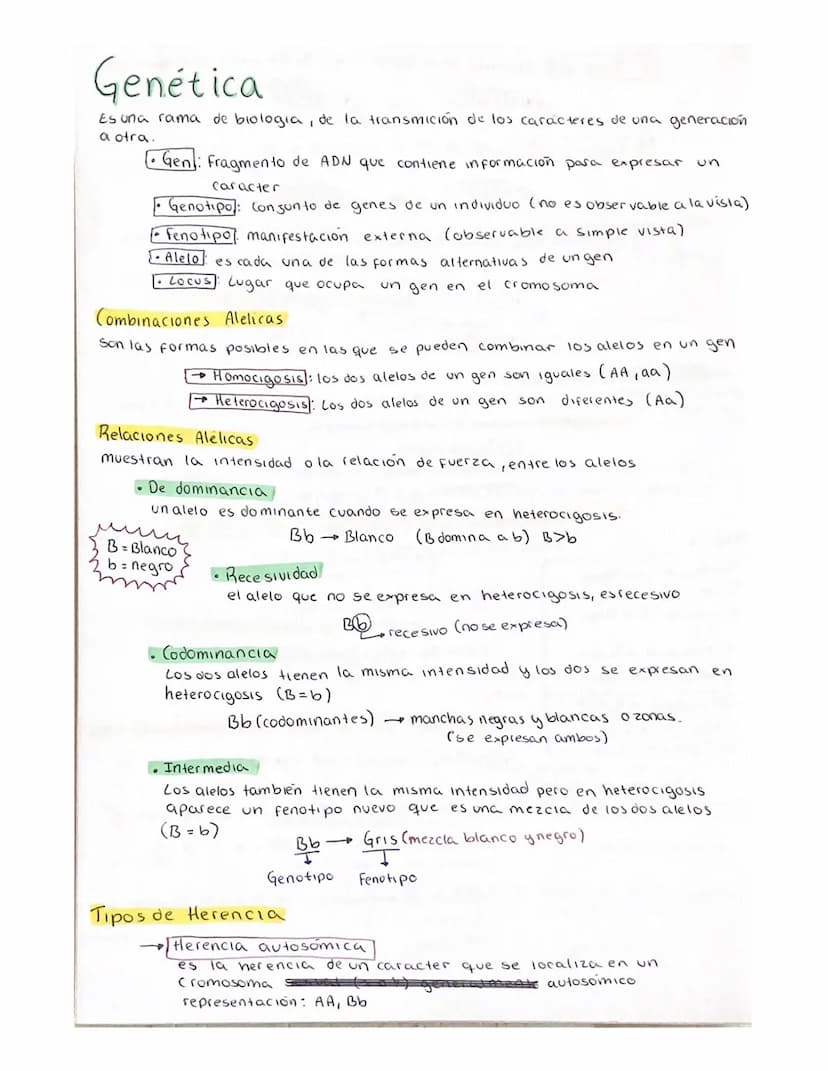 Genética
Es una rama de biología, de la transmición de los carácteres de una generación
a otra.
• Gen: Fragmento de ADN que contiene información para expresar un
caracter
• Genotipo: Conjunto de genes de un individuo (no es observable a la vista)
• Fenotipo: manifestación externa (observable a simple vista)
• Alelo: es cada una de las formas alternativas de un gen
• Locus: Lugar que ocupa un gen en el cromosoma
Combinaciones Alelicas
Son las formas posibles en las que se pueden combinar los alelos en un gen
→ Homocigosis: los dos alelos de un gen son iguales (AA, aa)
→ Heterocigosis: Los dos alelos de un gen son diferentes (Aa)
Relaciones Alélicas
muestran la intensidad o la relación de fuerza, entre los alelos
• De dominancia
un alelo es dominante cuando se expresa en heterocigosis.
Bb → Blanco (B domina a b) B>b
B = Blanco
b = negro
• Recesividad
el alelo que no se expresa en heterocigosis, es recesivo
Bb
→ recesivo (no se expresa)
• Codominancia
Los dos alelos tienen la misma intensidad y los dos se expresan en
heterocigosis (B=b)
Bb (codominantes) → manchas negras y blancas o zonas.
(se expresan ambos)
• Intermedia
Los alelos también tienen la misma intensidad pero en heterocigosis
aparece un fenotipo nuevo que es una mezcla de los dos alelos
(B = b)
Bb → Gris (mezcla blanco y negro)
Genotipo Fenotipo
Tipos de Herencia
→ Herencia autosómica
es la herencia de un caracter que se localiza en un
cromosoma autosómico
representación: AA, Bb